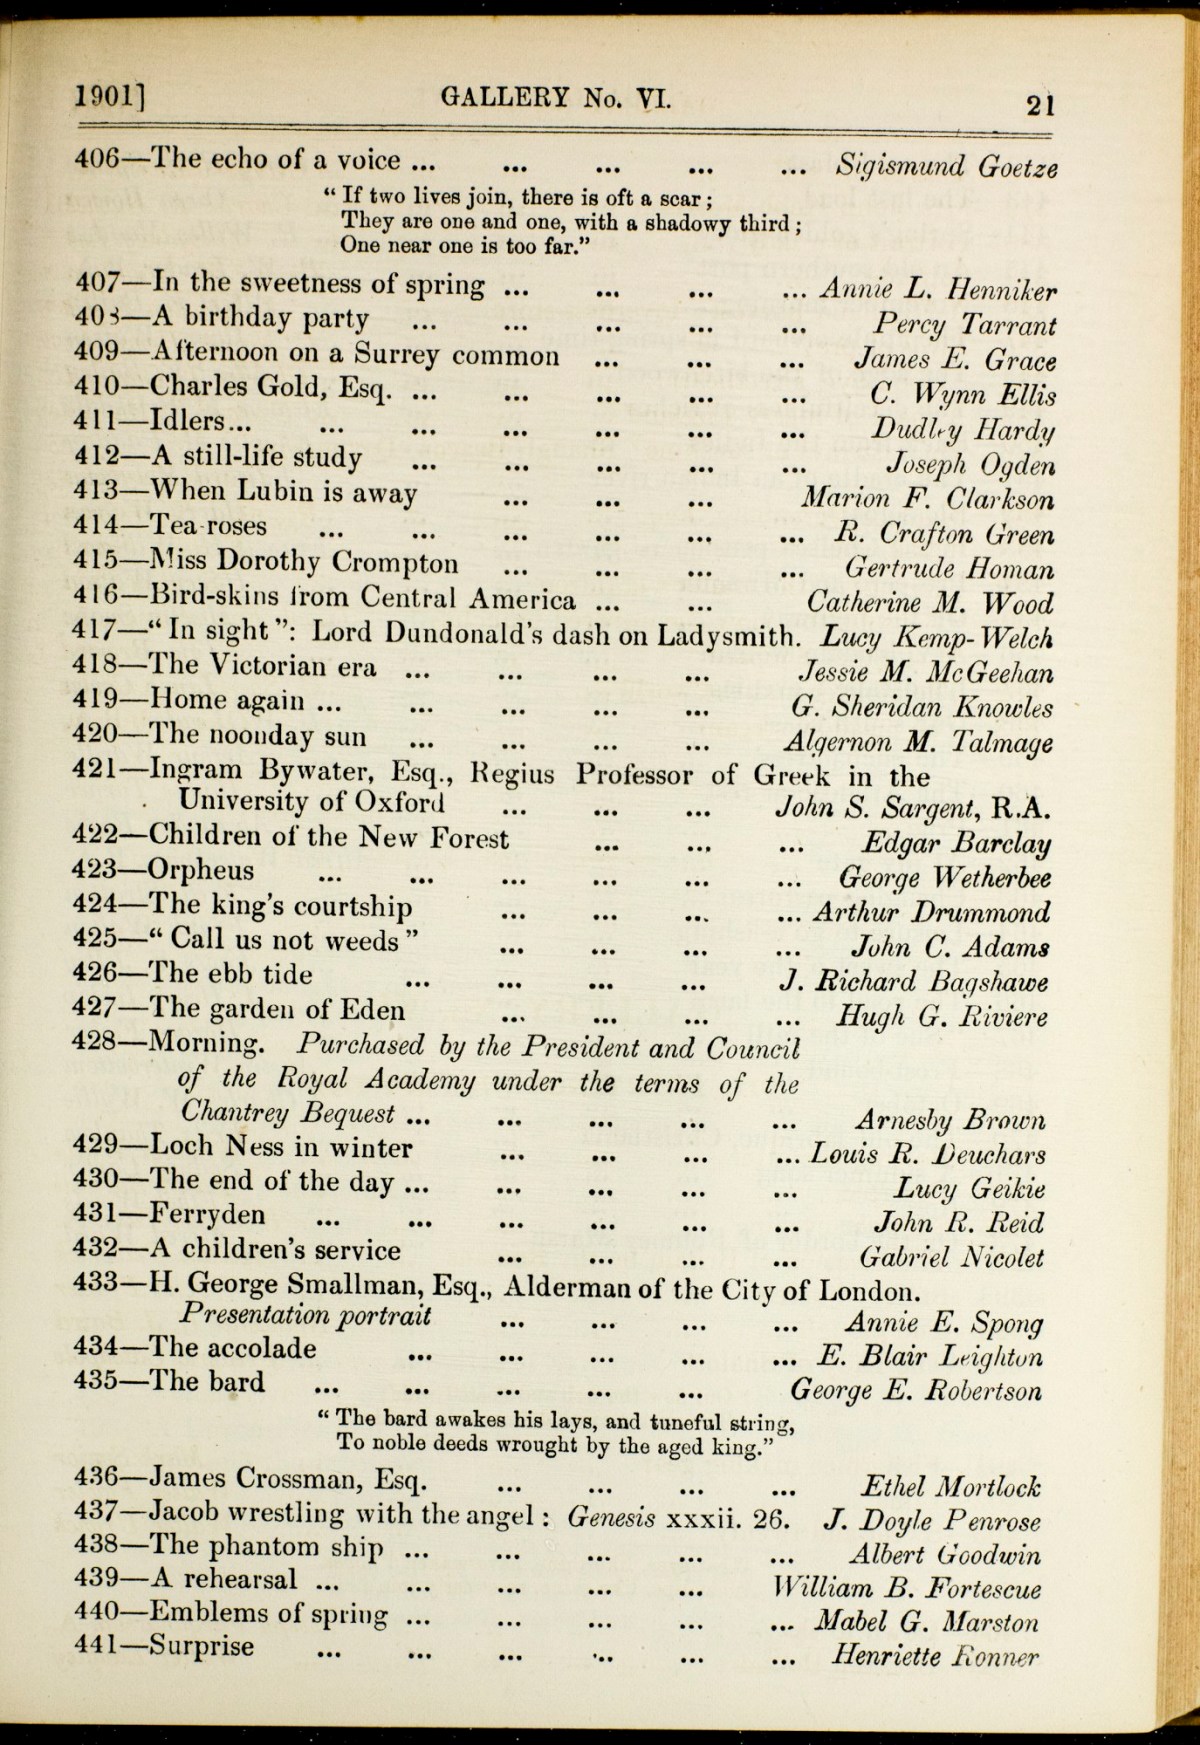 1901] GALLERY No. VI. 21
406—The echo of a voice ... ... ... ... ... Sigismund Goetze
“ If two lives join, there is oft a scar ;
They are one and one, with a shadowy third ;
One near one is too far.”
407—In the sweetness of spring ... ... ... ... Annie L. Henniker
408—A birthday party ... ... ... ... ... Percy Tarrant
409—Afternoon on a Surrey common ... ... ... James E. Grace
410—Charles Gold, Esq. ... ... ... ... ... C. Wynn Ellis
411—Idlers... ... ... ... ... ... ... Dudley Hardy
412—A still-life study ... ... ... ... ... Joseph Ogden
413—When Lubin is away ... ... ... Marion F. Clarkson
414—Tea-roses ... ... ... ... ... ... R. Crafton Green
415—Miss Dorothy Crompton ... ... ... ... Gertrude Homan
416—Bird-skins from Central America ... ... Catherine M. Wood
417—“ In sight ”: Lord Dundonald’s dash on Ladysmith. Lucy Kemp-Welch
418—The Victorian era ... ... ... ... Jessie M. McGeehan
419—Home again ... ... ... ... ... G. Sheridan Knowles
420—The noonday sun ... ... ... ... Algernon M. Talmage
421—Ingram Bywater, Esq., Regius Professor of Greek in the
University of Oxford ... ... ... John S. Sargent, R.A.
422—Children of the New Forest ... ... ... Edgar Barclay
423—Orpheus ... ... ... ... ... ... George Wetherbee
424—The king’s courtship ... ... ... ... Arthur Drummond
425—“ Call us not weeds ” ... ... ... ... John C. Adams
426—The ebb tide ... ... ... ... J. Richard Bagshawe
427—The garden of Eden ... ... ... ... Hugh G. Riviere
428—Morning. Purchased by the President and Council
of the Royal Academy under the terms of the
Chantrey Bequest ... ... ... ... ... Arnesby Brown
429—Loch Ness in winter ... ... ... ... Louis R. Deuchars
430—The end of the day ... ... ... ... ... Lucy Geikie
431—Ferryden ... ... ... ... ... ... John R. Reid
432—A children’s service ... ... ... ... Gabriel Nicolet
433—H. George Smallman, Esq., Alderman of the City of London.
Presentation portrait ... ... ... ... Annie E. Spong
434—The accolade ... ... ... ... ... E. Blair Leighton
435—The bard ... ... ... ... ... George E. Robertson
“ The bard awakes his lays, and tuneful string,
To noble deeds wrought by the aged king.”
436—James Crossman, Esq. ... ... ... ... Ethel Mortlock
437—Jacob wrestling with the angel : Genesis xxxii. 26. J. Doyle Penrose
438—The phantom ship ... ... ... ... ... Albert Goodwin
439—A rehearsal ... ... ... ... ... William B. Fortescue
440—Emblems of spring ... ... ... ... ... Mabel G. Marston
441—Surprise ... ... ... ... ... ... Henriette Ronner